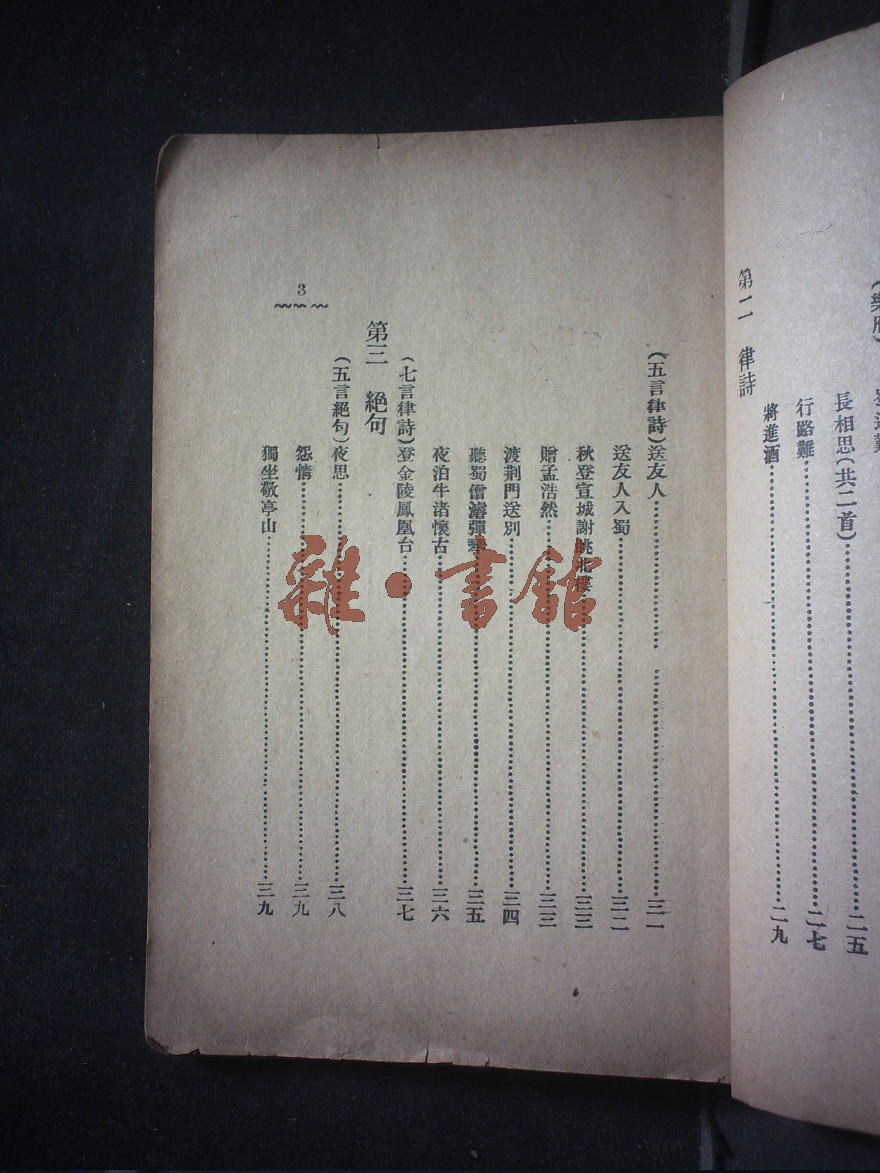 長相思(共二首)……二五
行路難……二七
將進酒……二九
第二 律詩
(五言律詩)送友人……三一
送友人入蜀……三二
秋登宣城謝朓北樓……三三
贈孟浩然……三三
渡荆門送別……三四
聽蜀僧濬彈琴……三五
夜泊牛渚懷古……三六
(七言律詩)登金陵鳳凰台……三七
第三 絕句
(五言絕句)夜思……三八
怨情……三九
獨坐敬亭山……三九
3
雜·書館